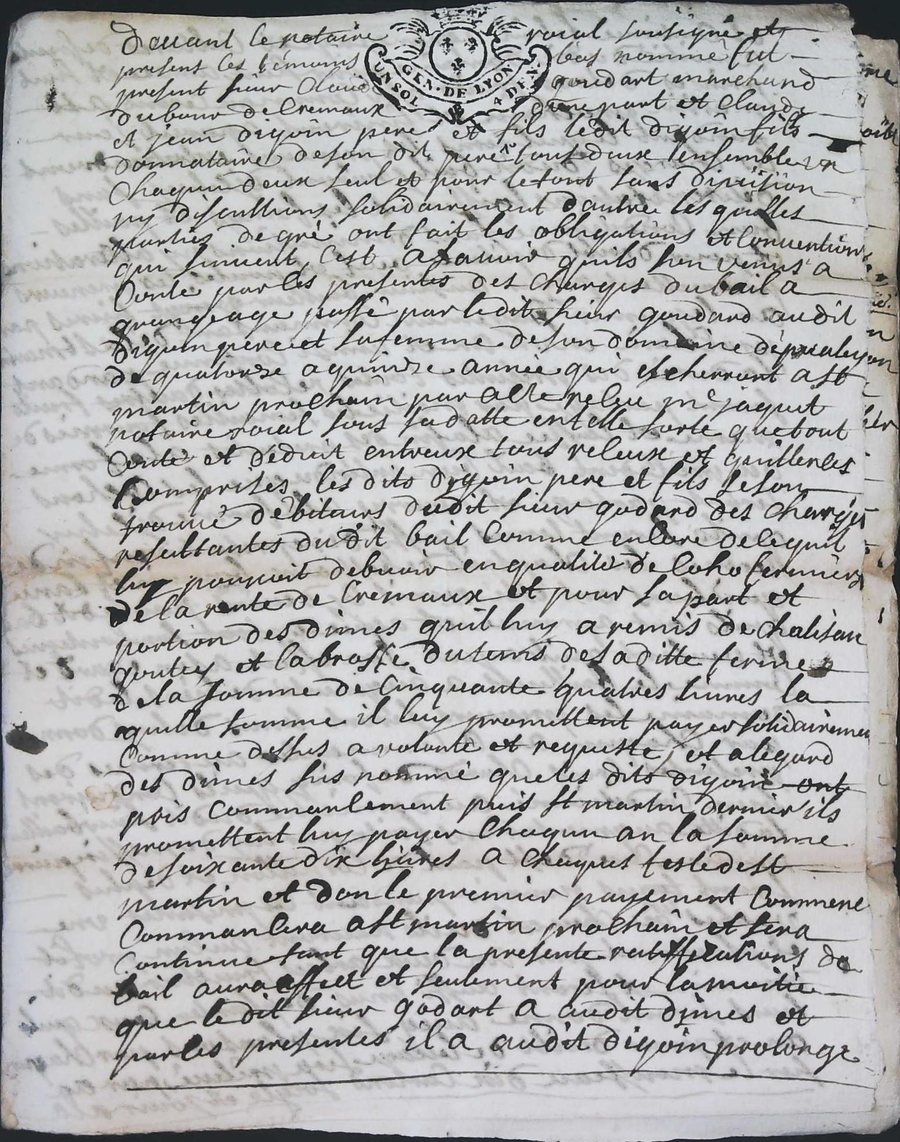 davant le notaire roial soubsigné et
present les temoins bas nommé fut
present sieur Claude goudart marchand
GEN · DE LYON
UN SOL 4 DEN.
du bourg de Cremaux d'une part et Claude
et jean digoin pere et fils ledit digoin fils
donnataire de son dit pere tous deux ensemble
chaqun deux seul et pour le tout sans division
ny discutions solidairement d'autre les quelles
parties de gré ont fait les obligations et conventions
qui suivent, c'est a savoir quils sen venus a
Conte par les presentes des charges du bail a
grangeage passé par ledit sieur goudard audit
digoin pere et sa femme de son domaine
de quatorze a quinze année qui echerront a st
martin prochain par acte releu me jaquet
notaire roial sous sa datte en telle sorte que tout
Conté et deduit entreux tous releux et quittences
Comprises les dits digoin pere et fils se son
trouvé debiteurs dudit sieur godard des charges
resultantes du dit bail Comme encore de le quil
luy pouvoit debvoir en qualité de fermier
de la rente de Cremaux et pour sa part et
portion des dimes quil luy a remis de
et labrosse du tems de sa ditte ferme
de la somme de Cinquante quatres livres la
quelle somme il luy promettent payer solidairement
Comme desses a volonte et requiste, et alegard
des dimes sus nommé que les dits digoin ont
pris commanlement puis st martin dernier ils
promettent luy payer chaqun an la somme
de soixante dix livres a chaques feste de st
martin et don le premier payement Commenc
Commancera a st martin prochain et sera
Continue tant que la presente ratiffications de
bail aura effect et seulement pour la moitie
que ledit sieur godart a audit dimes et
par les presentes il a audit digoin prolongé